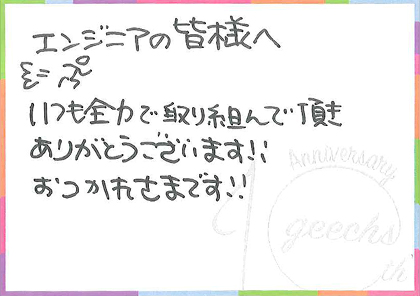 エンジニアの皆様へ
いつも全力で取り組んで頂き
ありがとうございます!!
おつかれさまです!!
Anniversary
10
geechs
th